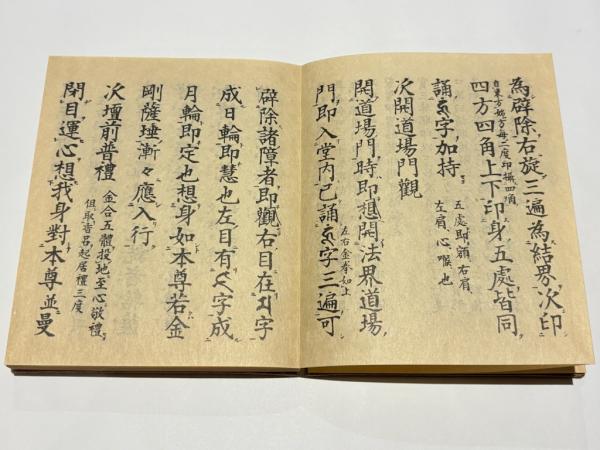 為辟除、右旋三遍為結界、次印
自東方始方每一度印攝四順
四方四角上下印身五處皆同
誦𑖮𑖳𑖽字加持
五處即額右肩
左肩、心喉也
次開道場門觀
開道場門時即想開法界道場
門即入堂内已誦𑖮𑖳𑖽字三遍可
左右金拳如上
辟除諸障者即觀右目在字
成日輪即慧也左目有字成
月輪即定也想身如本尊若金
剛薩埵漸々應入行
次壇前普禮
金合五體投地至心敬禮
但取香呂起居禮三度
閉目運心想我身對本尊並曼